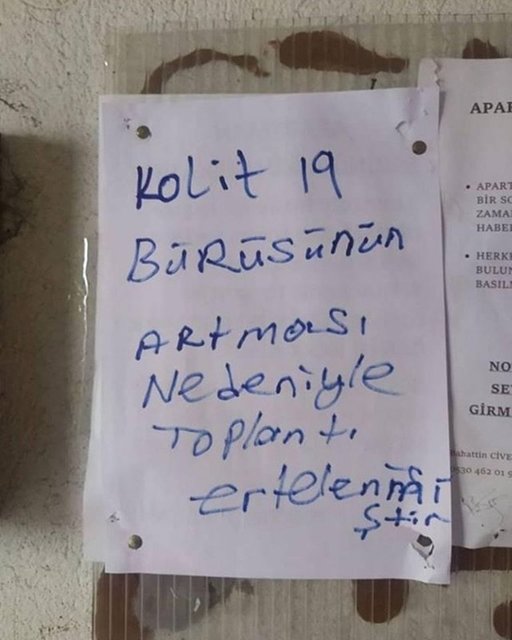 Kolit 19
BÜRÜSÜNÜN
ARtmASI
Nedeniyle
Toplantı
ertelenmi
ştir
APAR
• APART
BİR SO
ZAMA
HABE
• HERKE
BULUN
BASILM
NO
SE
GİRM
Bahattin CİVE
0530 462 01 9